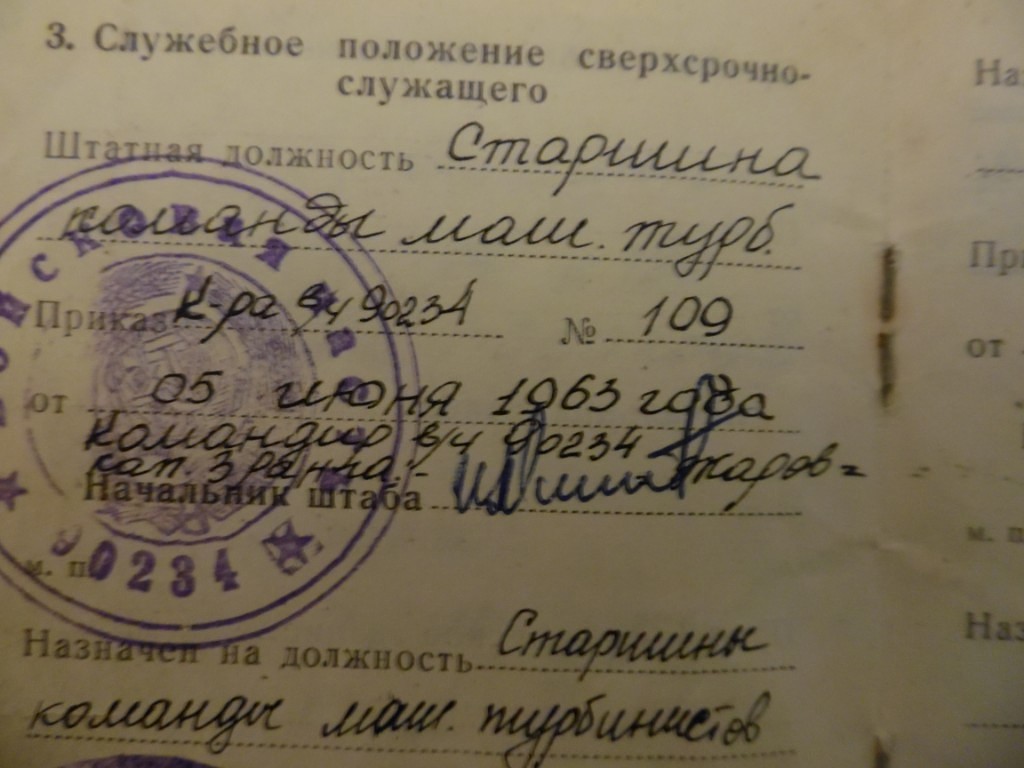 3. Служебное положение сверхсрочно-
служащего
Штатная должность Старшина
команды маш. турб.
Приказ К-ра в/ч 90234 № 109
от 05 июня 1963 года
Командир в/ч 90234
кап. 3 ранга
Начальник штаба
м. п.
90234
Назначен на должность Старшины
команды маш. турбинистов
от
м. п.